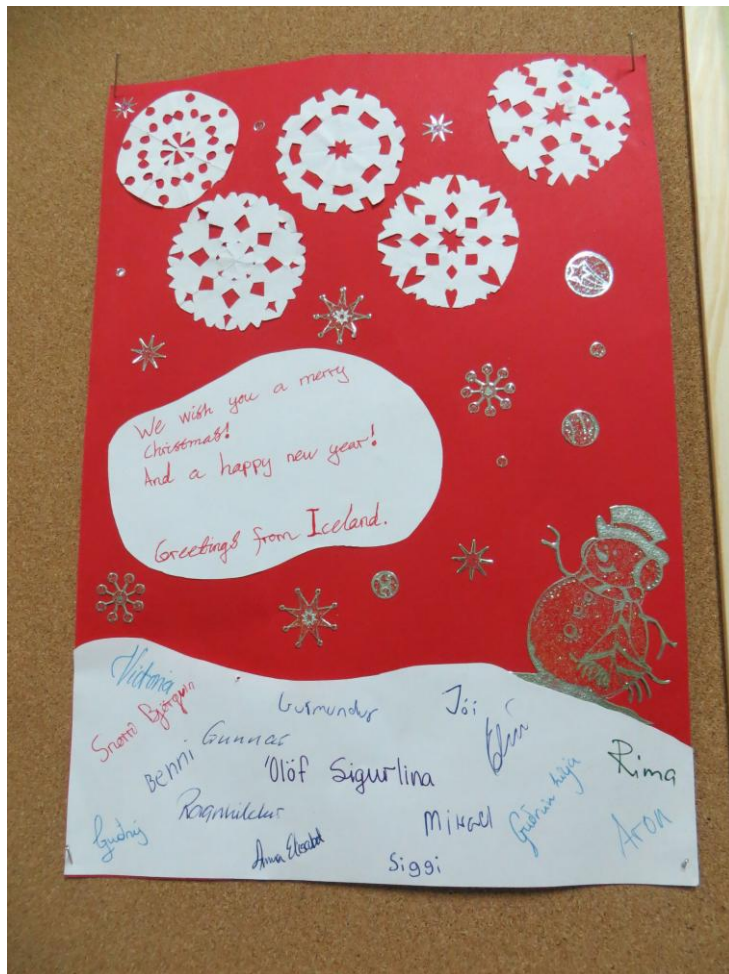 We wish you a merry
Christmas!
And a happy new year!
Greetings from Iceland.
Victoria
Snorri Björgvin
Gunnar
Jói
Benni
Ólöf Sigurlina
Rima
Ragnhildur
Guðrún Lilja
Aron
Anna Elísabet
Siggi